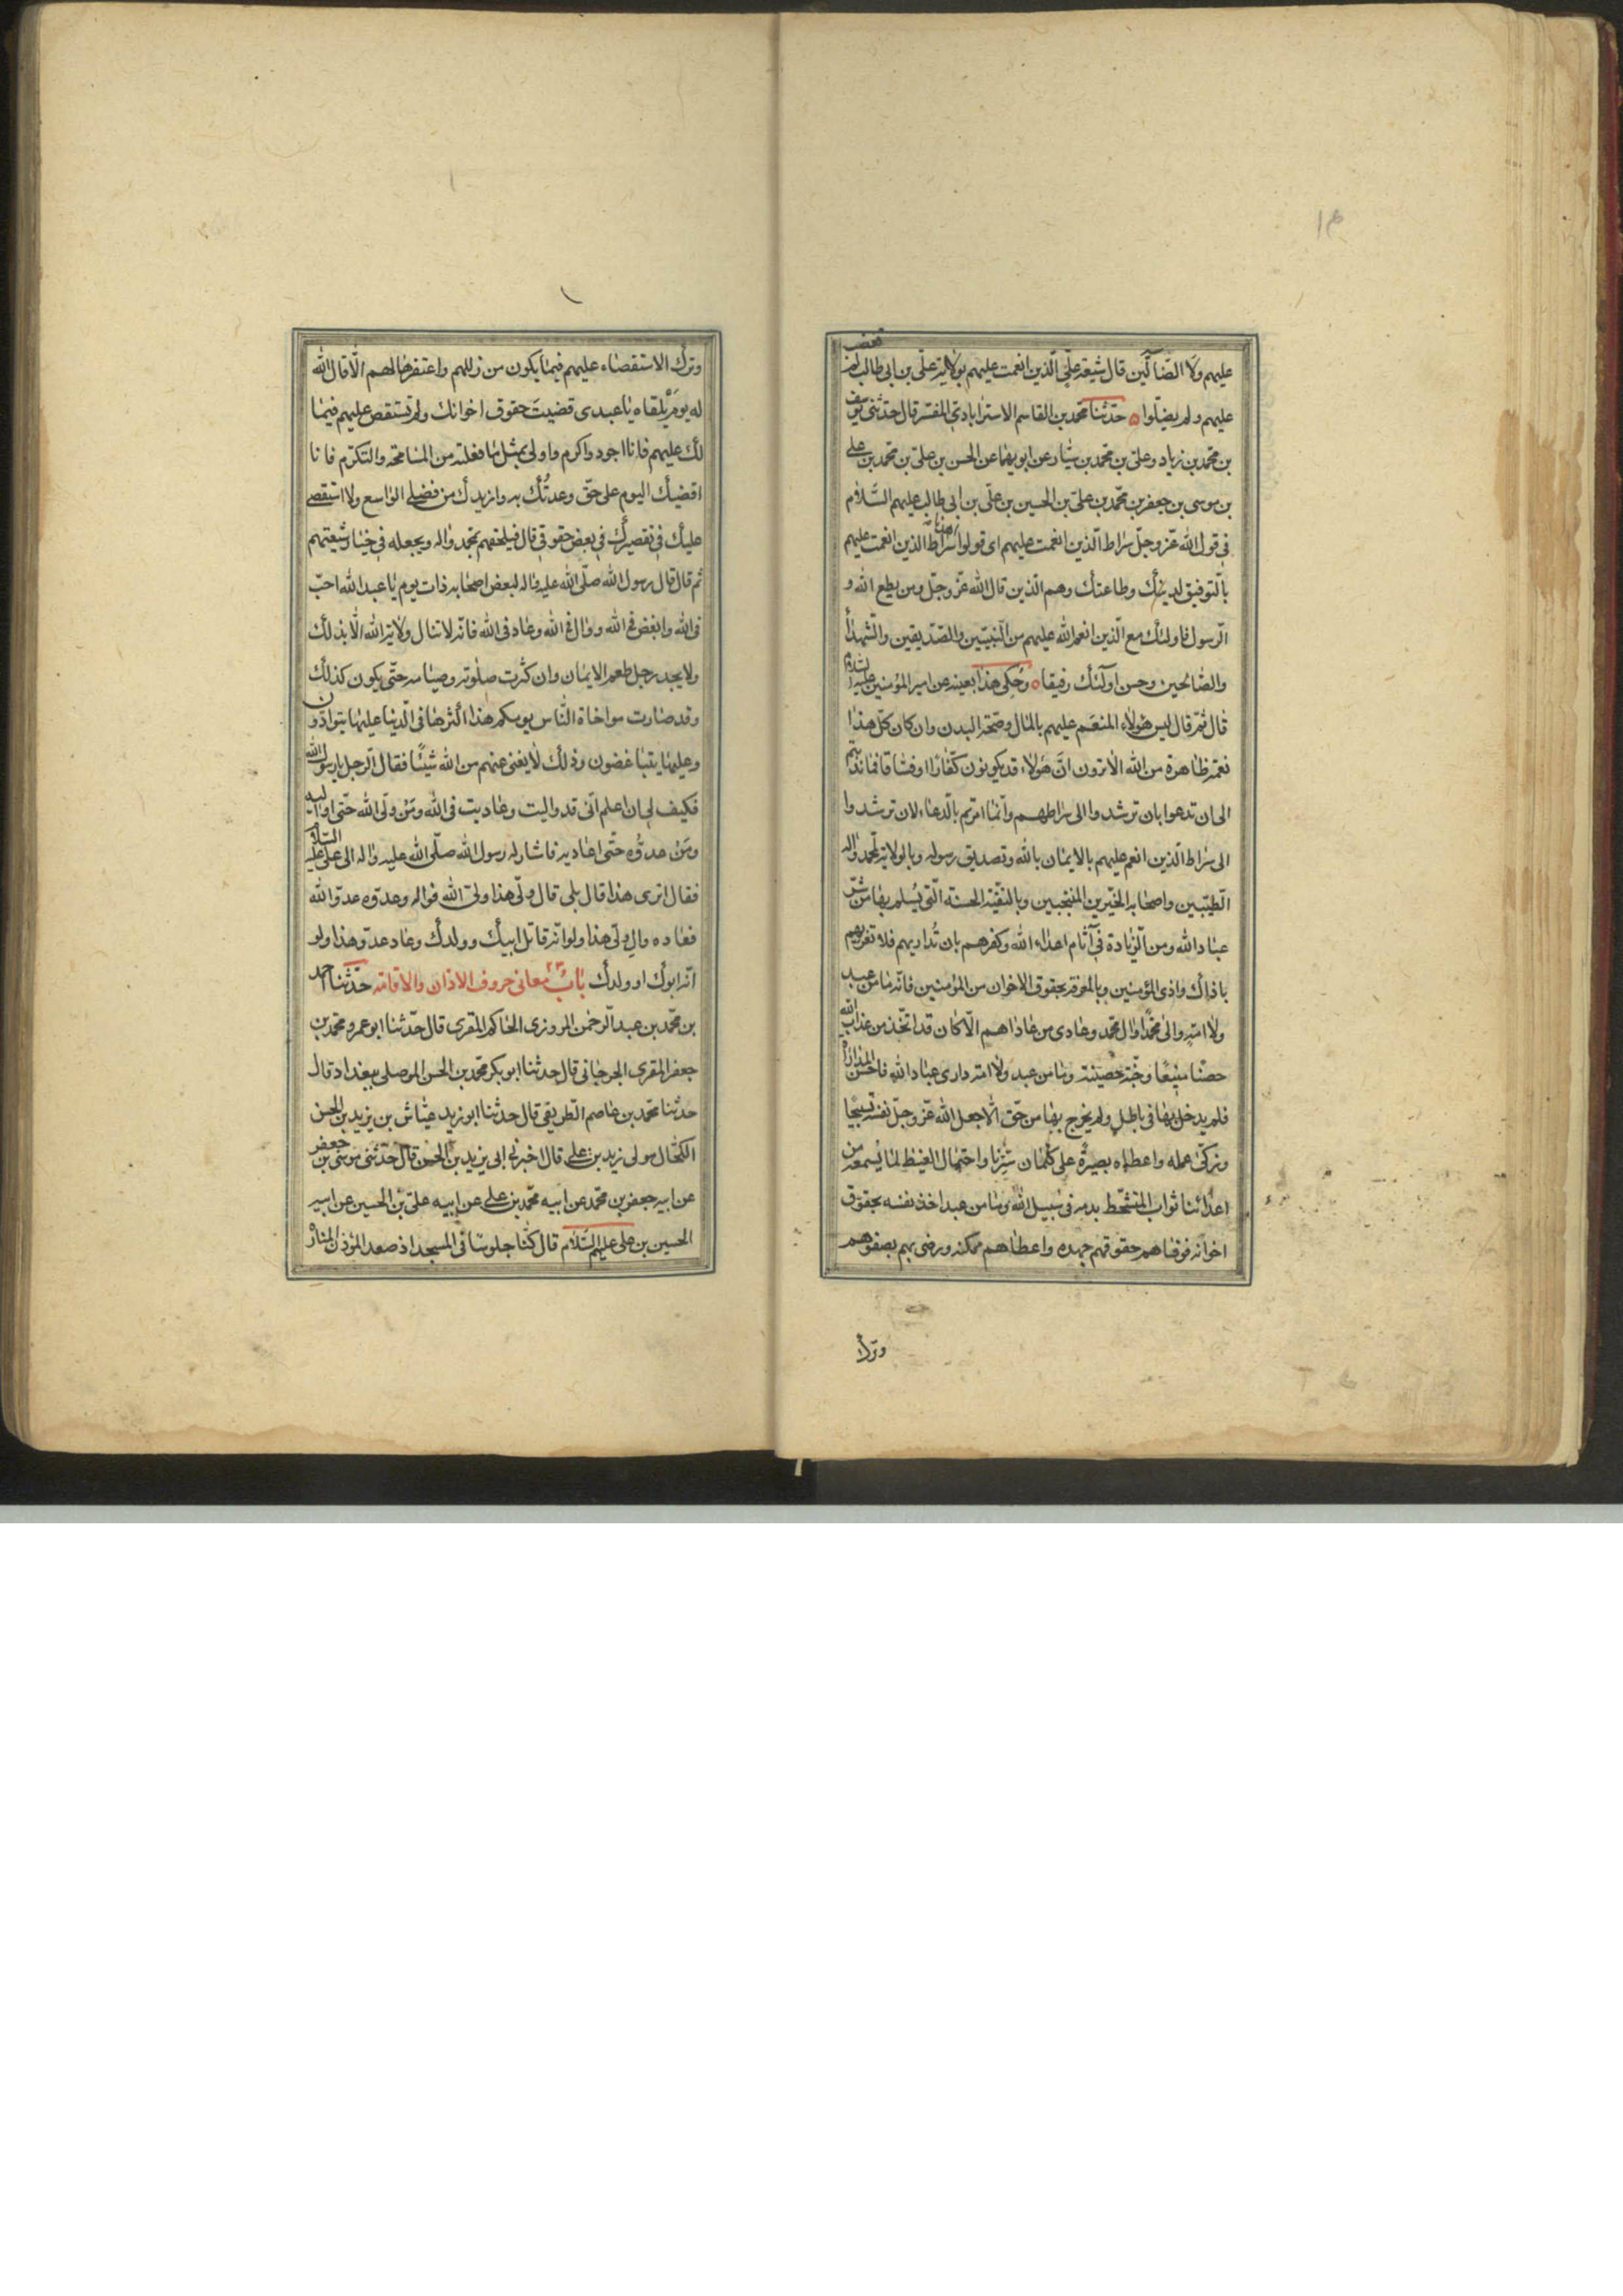 عليهم ولا الضّآلّين قال شيعة علىّ الّذين انعمت عليهم بولاية علىّ بن ابى طالب لم تغضب
عليهم ولم يضلّوا ه حدّثنا محمّد بن القاسم الاسترابادى المفسّر قال حدّثنى يوسف
بن محمّد بن زياد وعلىّ بن محمّد بن سيّار عن ابويهما عن الحسن بن علىّ بن محمّد بن على
بن موسى بن جعفر بن محمّد بن علىّ بن الحسين بن علىّ بن ابى طالب عليهم السّلام
فى قول الله عزّ وجلّ صراط الّذين انعمت عليهم اى قولوا اهدنا صراط الذين انعمت عليهم
بالتّوفيق لدينك وطاعتك وهم الّذين قال الله عزّ وجلّ ومن يطع الله و
الرّسول فاولئك مع الّذين انعم الله عليهم من النّبيّين والصّدّيقين والشّهدآء
والصّالحين وحسن اولٓئك رفيقا ه وحُكِى هذا بعينه عن امير المؤمنين عليه السّلام
قال ثمّ قال ليس هؤلاء المنعم عليهم بالمال وصحّة البدن وان كان كلّ هذا
نعمة ظاهرة من الله الا ترون انّ هؤلاء قد يكونون كفّارًا او فسّاقا فما ندبتم
الى ان تدعوا بان ترشدوا الى صراطهم وانّما امرتم بالدّعاء لان ترشدوا
الى صراط الّذين انعم عليهم بالايمان بالله وتصديق رسوله وبالولاية لمحمّد واله
الطّيّبين واصحابه الخيّرين المنتجبين وبالتّقيّة الحسنة الّتى يُسلم بها من شرّ
عباد الله ومن الزّيادة فى آثام اعداء الله وكفرهم بان تُداريهم فلا تغريهم
باذاك واذى المؤمنين وبالمعرفة بحقوق الاخوان من المؤمنين فانّه ما من عبد
ولا امة والى محمّدًا وال محمّد وعادى من عاداهم الّا كان قد اتّخذ من عذاب الله
حصنًا منيعًا وجنّة حصينة وما من عبد ولا امة دارى عباد الله فاحسن المداراة
فلم يدخل بها فى باطل ولم يخرج بها من حقّ الّا جعل الله عزّ وجلّ نفسه تسبيحًا
وزكّى عمله واعطاه بصيرةً على كتمان سرّنا واحتمال الغيظ لما يسمعه من
اعدائنا ثواب المتشحّط بدمه فى سبيل الله وما من عبد اخذ نفسه بحقوق
اخوانه فوفّاهم حقوقهم جهده واعطاهم ممكنه ورضى بهم بصفوهم
وترك
وترك الاستقصاء عليهم فيما يكون من زللهم واغتفرها لهم الّا قال الله
له يوم يلقاه يا عبدى قضيت حقوق اخوانك ولم تستقص عليهم فيما
لك عليهم فانا اجود واكرم واولى بمثل ما فعلته من المسامحة والتكرّم فانا
اقضيك اليوم على حقّ وعدتُك به وازيدك من فضلى الواسع ولا استقصى
عليك فى تقصيرك فى بعض حقوقى قال فيلحقهم بمحمّد واله ويجعله فى خيار شيعتهم
ثم قال قال رسول الله صلّى الله عليه واله لبعض اصحابه ذات يوم يا عبد الله احبّ
فى الله وابغض فى الله ووال فى الله وعاد فى الله فانّه لا تنال ولاية الله الّا بذلك
ولا يجد رجل طعم الايمان وان كثرت صلوته وصيامه حتّى يكون كذلك
وقد صارت مواخاة النّاس يومكم هذا اكثرها فى الدّنيا عليها يتوادّون
وعليها يتباغضون وذلك لا يغنى عنهم من الله شيئًا فقال الرّجل يا رسول الله
فكيف لى ان اعلم انّى قد واليت وعاديت فى الله ومَنْ ولىّ الله حتّى اواليه
ومَنْ عدوّه حتّى اعاديه فاشار له رسول الله صلّى الله عليه واله الى علىّ عليه السّلام
فقال اترى هذا قال بلى قال ولىّ هذا ولىّ الله فواله وعدوّه عدوّ الله
فعاده وال ولىّ هذا ولو انّه قاتل ابيك وولدك وعاد عدوّ هذا ولو
انّه ابوك او ولدك بابُ معانى حروف الاذان والاقامة حدّثنا احمد
بن محمّد بن عبد الرّحمن المروزى الحاكم المقرى قال حدّثنا ابو عمرو محمّد بن
جعفر المقرى الجرجانى قال حدثنا ابو بكر محمّد بن الحسن الموصلى ببغداد قال
حدثنا محمّد بن عاصم الطّريفى قال حدثنا ابو زيد عيّاش بن يزيد بن الحسن
الكحّال مولى زيد بن على قال اخبرنى ابى يزيد بن الحسن قال حدّثنى موسى بن جعفر
عن ابيه جعفر بن محمّد عن ابيه محمّد بن على عن ابيه علىّ بن الحسين عن ابيه
الحسين بن على عليهم السّلام قال كنّا جلوسًا فى المسجد اذ صعد المؤذن المنارة